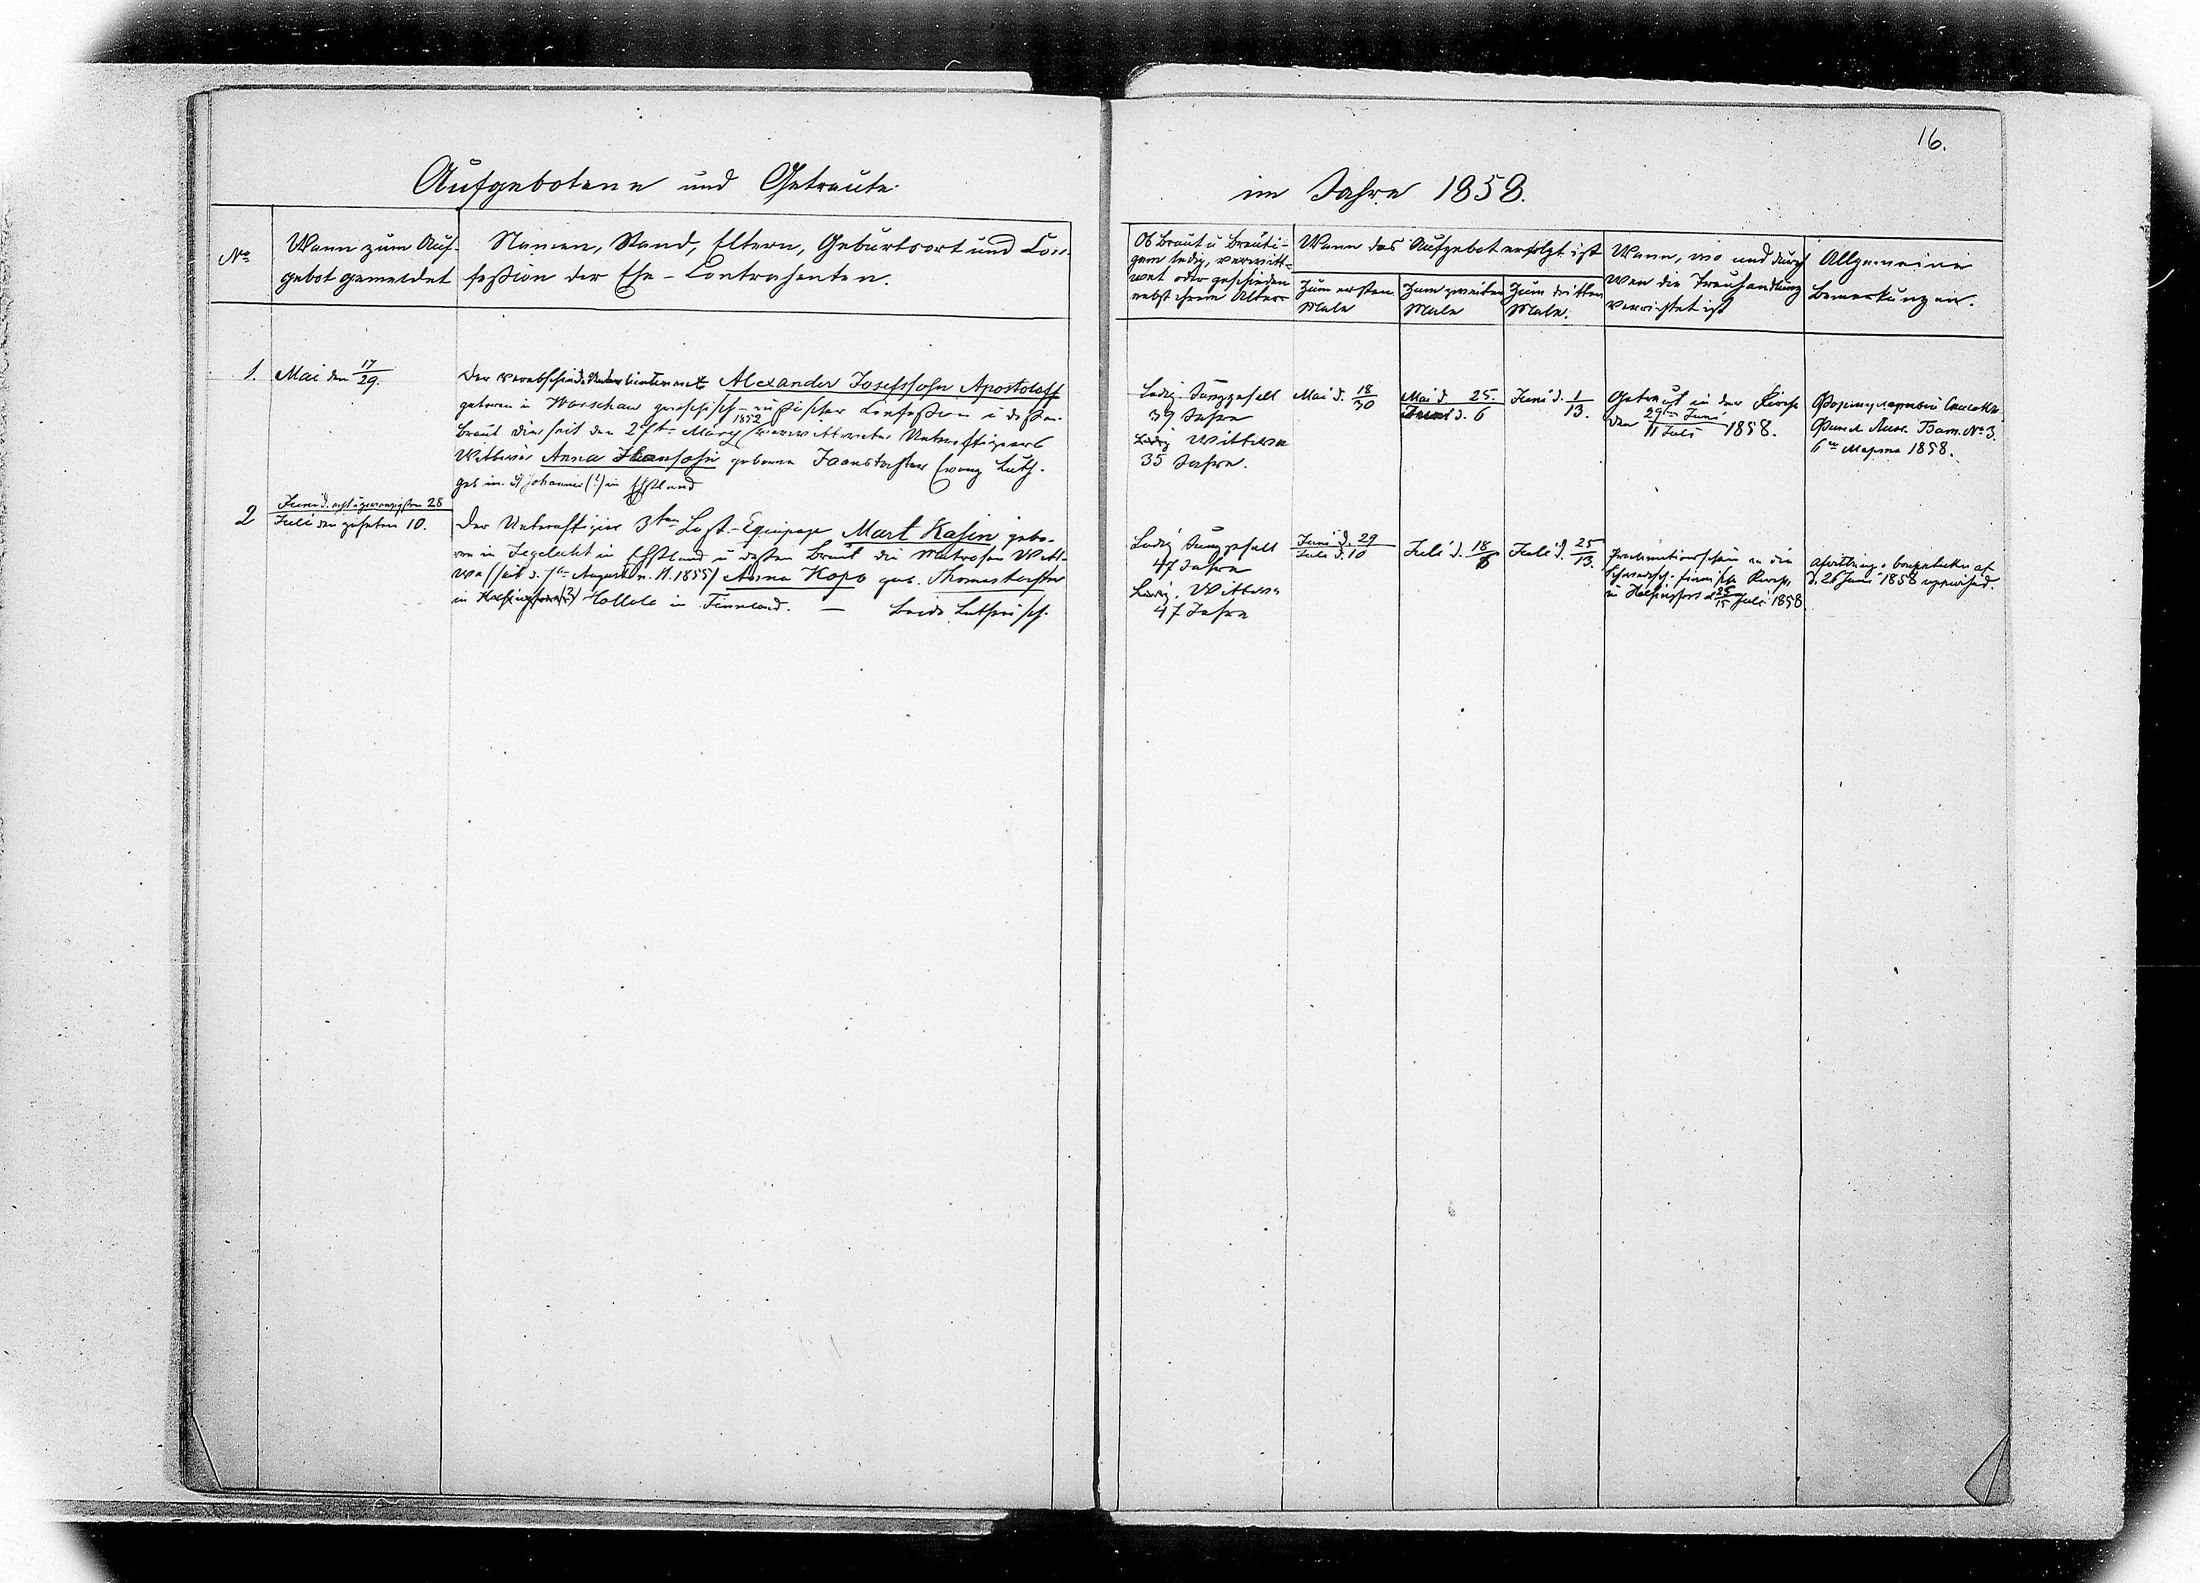 16.
Aufgebotene und Getraute
im Jahre 1858.
No
Wann zum Auf-
gebot gemeldet
Namen, Stand, Eltern, Geburtsort und Con-
fession der Ehe-Contrahenten.
Ob Braut u Bräuti-
gam ledig, verwitt-
wet oder geschieden
nebst ihrem Alter
Wann das Aufgebot erfolgt ist
Zum ersten
Male
Zum zweiten
Male
Zum dritten
Male.
Wann, wo und durch
wen die Trauhandlung
verrichtet ist
Allgemeine
Bemerkungen.
1.
Mai den 17/29.
Der verabschiedete Unterlieutenant Alexander Josefssohn Apostoloff
geboren in Warschau griechisch-russischer Confession u dessen
Braut die seit den 2ten März 1852 verwittwete Unteroffiziers
Wittwe Anna geborene Jaanstochter Evang Luth.
geb in St Johannis (?) in Ehstland
Ledig Junggesell
39 Jahre
Ledig Wittwe
35 Jahre.
Mai d. 18/30
Mai d. 25.
d. 6
Juni d. 1/13.
Getraut in der Kirche
den 29ten Juni / 11 Juli 1858.
Формулярный Списокъ
Финл. Лин. Бат. № 3.
6го Марта 1858.
2
Juni d. acht u zwanzigsten 28
Juli den zehnten 10.
Der Unteroffizier 3ten Last-Equipage Mart Kasin gebo-
ren in Jegelecht in Ehstland u dessen Braut die Matrosen Witt-
we (seit d. August 1855) Anna Kopo geb. Thomastochter
in Hollola in Finnland. — Beide Lutherisch.
Ledig Junggesell
47 Jahre
Ledig. Wittwe
47 Jahre
Juni d. 29
Juli d. 10
Juli d. 18/6
Juli d. 25/13.
Proclamationsschein an die
Schwedisch-finnische Kirche
in Helsingfors d 25/15 Juli 1858
d. 26 Juni 1858 uppvisad.